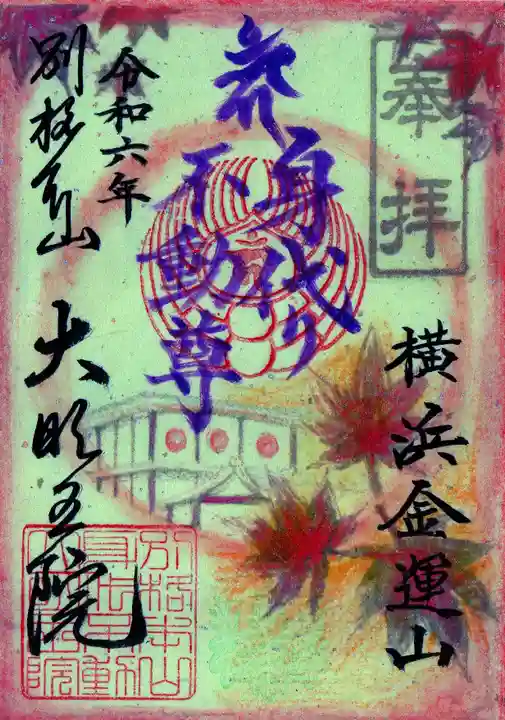 奉拝
横浜金運山
身代り
不動尊
令和六年
別格本山
大明王院